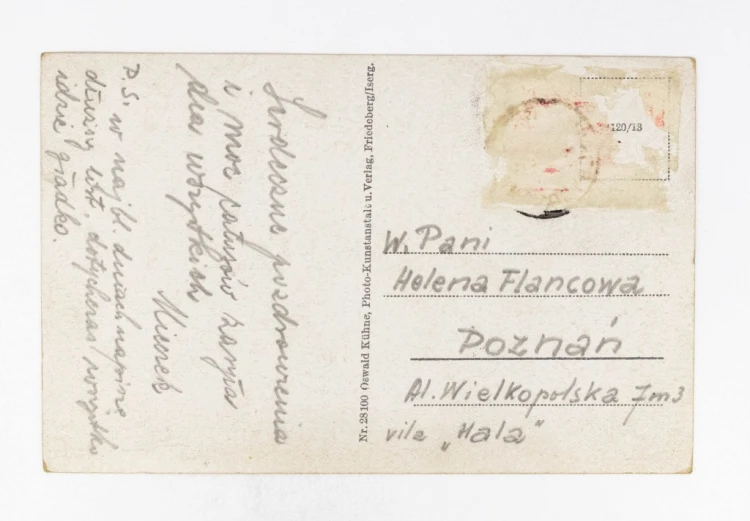 Serdeczne pozdrowienia
i moc całusów zasyła
dla wszystkich
Mietek
P.S. w najbl. dniach napiszę
dłuższy list. dotychczas wszystko
idzie gładko.
Nr. 28100 Oswald Kühne, Photo-Kunstanstalt u. Verlag, Friedeberg/Iserg.
120/13
W. Pani
Helena Flancowa
Poznań
Al. Wielkopolska 7m3
vila "Hala"